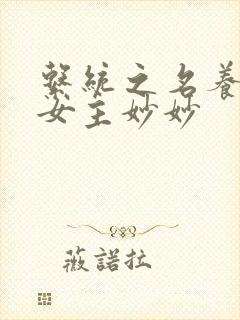 繫統之名養
女主妙妙
薇諾拉